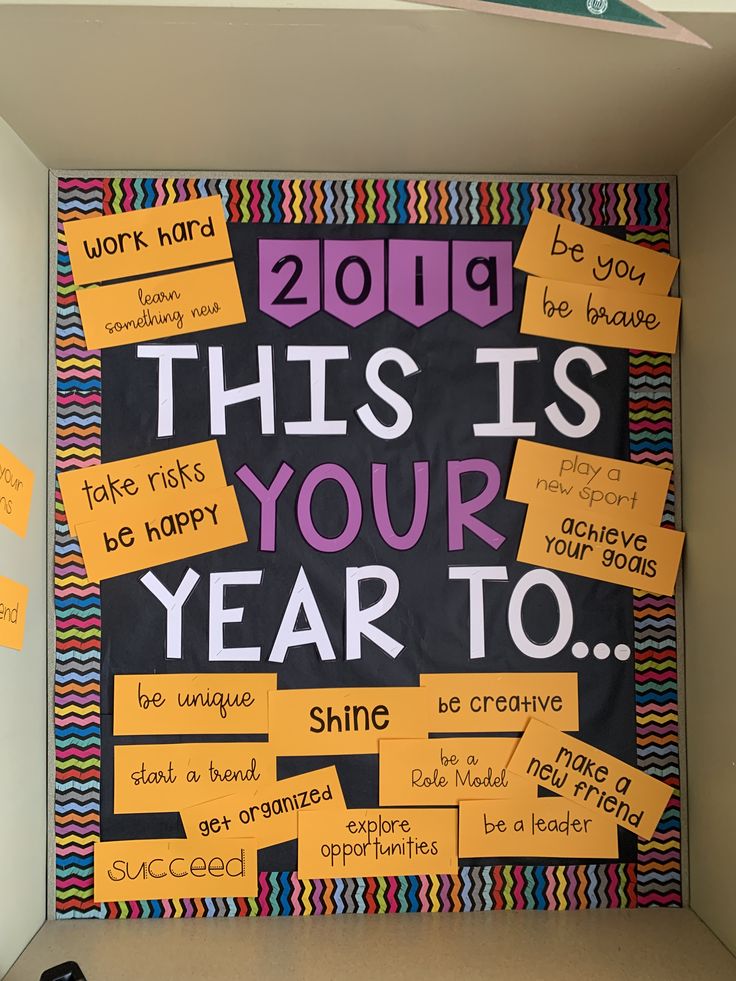 work hard
learn
something new
2019
be you
be brave
THIS IS
take risks
be happy
YOUR
play a
new sport
achieve
your goals
YEAR TO...
be unique
Shine
be creative
start a trend
be a
Role Model
make a
new friend
get organized
explore
opportunities
be a leader
succeed